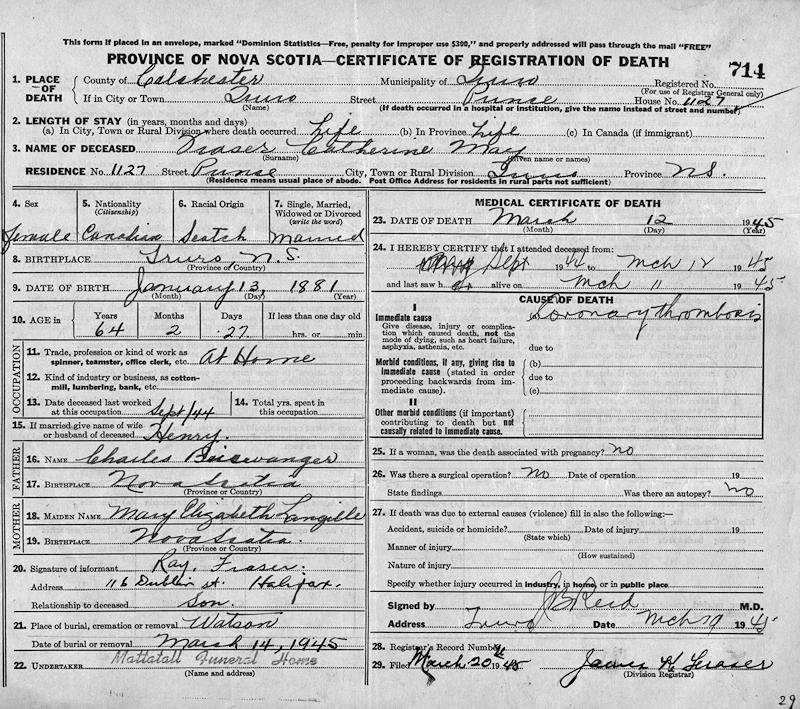 This form if placed in an envelope, marked "Dominion Statistics—Free, penalty for improper use $300," and properly addressed will pass through the mail "FREE"
PROVINCE OF NOVA SCOTIA—CERTIFICATE OF REGISTRATION OF DEATH
714
1. PLACE OF DEATH County of Colchester Municipality of Truro Registered No.
(For use of Registrar General only)
If in City or Town Truro Street Prince House No. 1127
(Name) (If death occurred in a hospital or institution, give the name instead of street and number)
2. LENGTH OF STAY (in years, months and days)
(a) In City, Town or Rural Division where death occurred Life (b) In Province Life (c) In Canada (if immigrant)
3. NAME OF DECEASED Fraser Catherine May
(Surname) (Given name or names)
RESIDENCE No. 1127 Street Prince City, Town or Rural Division Truro Province N.S.
(Residence means usual place of abode. Post Office Address for residents in rural parts not sufficient)
4. Sex 5. Nationality 6. Racial Origin 7. Single, Married, Widowed or Divorced
(Citizenship) (write the word)
Female Canadian Scotch Married
8. BIRTHPLACE Truro, N.S.
(Province or Country)
9. DATE OF BIRTH January 13, 1881
(Month) (Day) (Year)
10. AGE in Years Months Days If less than one day old
64 2 27 hrs. or min.
OCCUPATION
11. Trade, profession or kind of work as spinner, teamster, office clerk, etc. At Home
12. Kind of industry or business, as cotton-mill, lumbering, bank, etc.
13. Date deceased last worked at this occupation Sept/44 14. Total yrs. spent in this occupation
15. If married give name of wife or husband of deceased Henry.
FATHER
16. NAME Charles
17. BIRTHPLACE Nova Scotia
(Province or Country)
MOTHER
18. MAIDEN NAME Mary Elizabeth Langille
19. BIRTHPLACE Nova Scotia.
(Province or Country)
20. Signature of informant Ray. Fraser.
Address 116 Dublin St. Halifax.
Relationship to deceased Son.
21. Place of burial, cremation or removal Watson
Date of burial or removal March 14, 1945
22. UNDERTAKER Mattatall Funeral Home
(Name and address)
MEDICAL CERTIFICATE OF DEATH
23. DATE OF DEATH March 12 1945
(Month) (Day) (Year)
24. I HEREBY CERTIFY that I attended deceased from:
Sept 1944 to Mch 12 1945
and last saw h alive on Mch 11 1945
CAUSE OF DEATH
I
Immediate cause Coronary thrombosis
Give disease, injury or complication which caused death, not the mode of dying, such as heart failure, asphyxia, asthenia, etc.
due to
Morbid conditions, if any, giving rise to immediate cause (stated in order proceeding backwards from immediate cause).
(b)
due to
(c)
II
Other morbid conditions (if important) contributing to death but not causally related to immediate cause.
25. If a woman, was the death associated with pregnancy? no
26. Was there a surgical operation? no Date of operation 19
State findings Was there an autopsy? no
27. If death was due to external causes (violence) fill in also the following:—
Accident, suicide or homicide? Date of injury 19
(State which)
Manner of injury
(How sustained)
Nature of injury
Specify whether injury occurred in industry, in home, or in public place
Signed by J B Reid M.D.
Address Truro Date Mch 19 1945
28. Registrar's Record Number
29. Filed March 20 1945 James H Fraser
(Division Registrar)
29